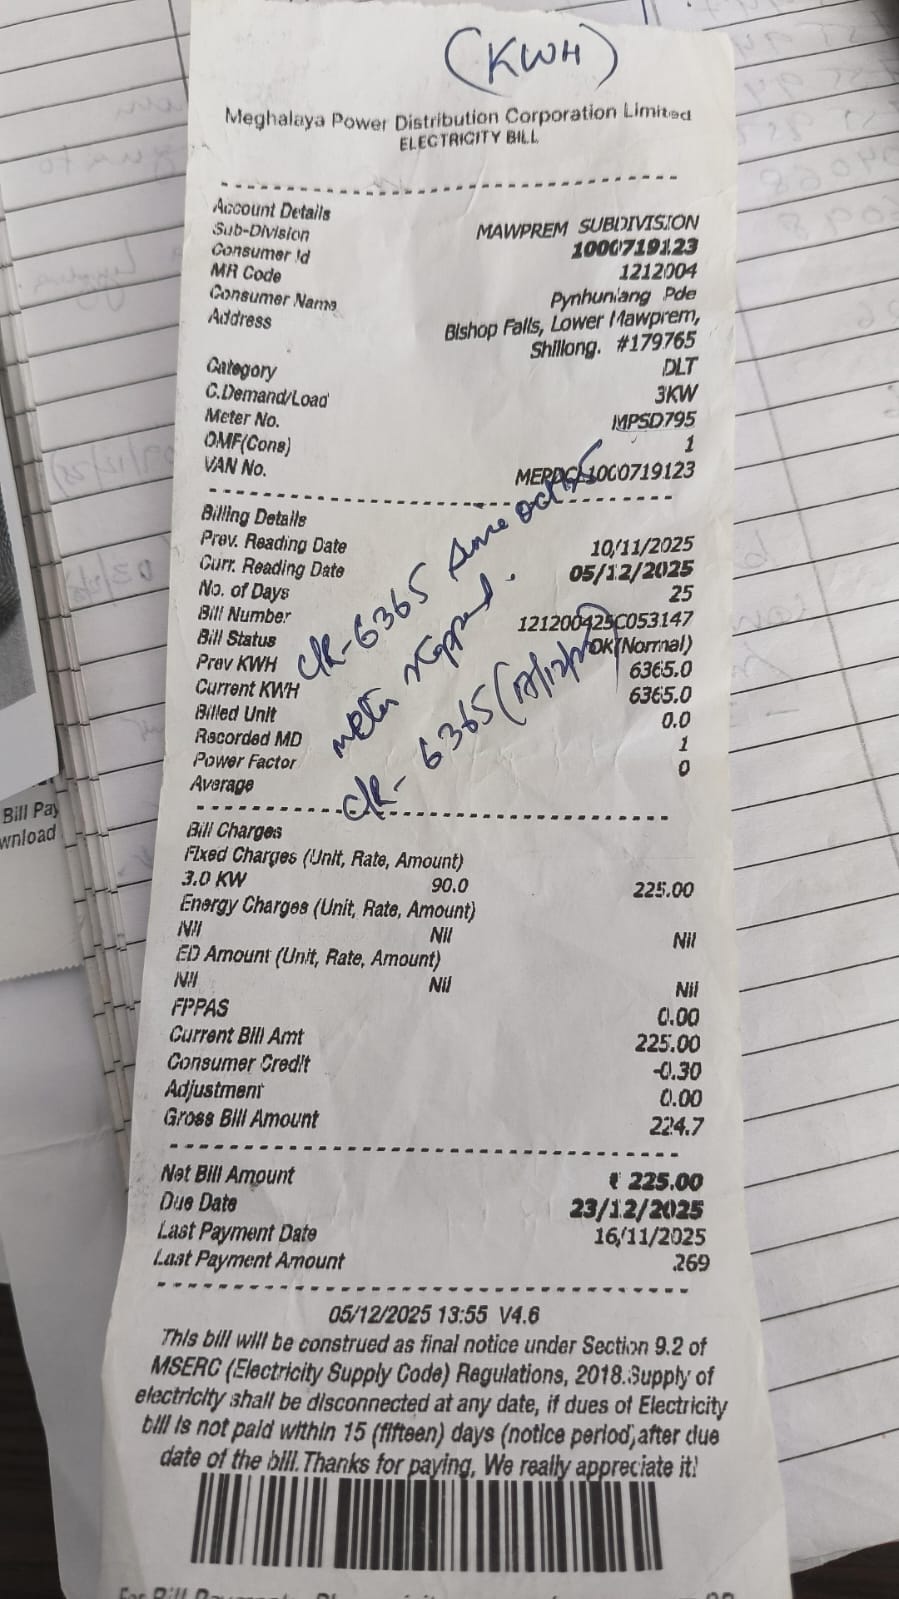 (KWH)
Meghalaya Power Distribution Corporation Limited
ELECTRICITY BILL
Account Details
Sub-Division MAWPREM SUBDIVISION
Consumer Id 1000719123
MR Code 1212004
Consumer Name Pynhunlang Pde
Address Bishop Falls, Lower Mawprem,
Shillong. #179765
Category DLT
C.Demand/Load 3KW
Meter No. MPSD795
OMF(Cons) 1
VAN No. MEPDCA1000719123
Billing Details
Prev. Reading Date 10/11/2025
Curr. Reading Date 05/12/2025
No. of Days 25
Bill Number 121200425C053147
Bill Status OK(Normal)
Prev KWH 6365.0
Current KWH 6365.0
Billed Unit 0.0
Recorded MD 1
Power Factor 0
Average
c/R-6365 Since Oct
meter stopped.
c/R- 6365
Bill Charges
Fixed Charges (Unit, Rate, Amount)
3.0 KW 90.0 225.00
Energy Charges (Unit, Rate, Amount)
Nil Nil Nil
ED Amount (Unit, Rate, Amount)
Nil Nil Nil
FPPAS 0.00
Current Bill Amt 225.00
Consumer Credit -0.30
Adjustment 0.00
Gross Bill Amount 224.7
Net Bill Amount ₹ 225.00
Due Date 23/12/2025
Last Payment Date 16/11/2025
Last Payment Amount 269
05/12/2025 13:55 V4.6
This bill will be construed as final notice under Section 9.2 of
MSERC (Electricity Supply Code) Regulations, 2018.Supply of
electricity shall be disconnected at any date, if dues of Electricity
bill is not paid within 15 (fifteen) days (notice period)after due
date of the bill.Thanks for paying, We really appreciate it!
Bill Pay
wnload